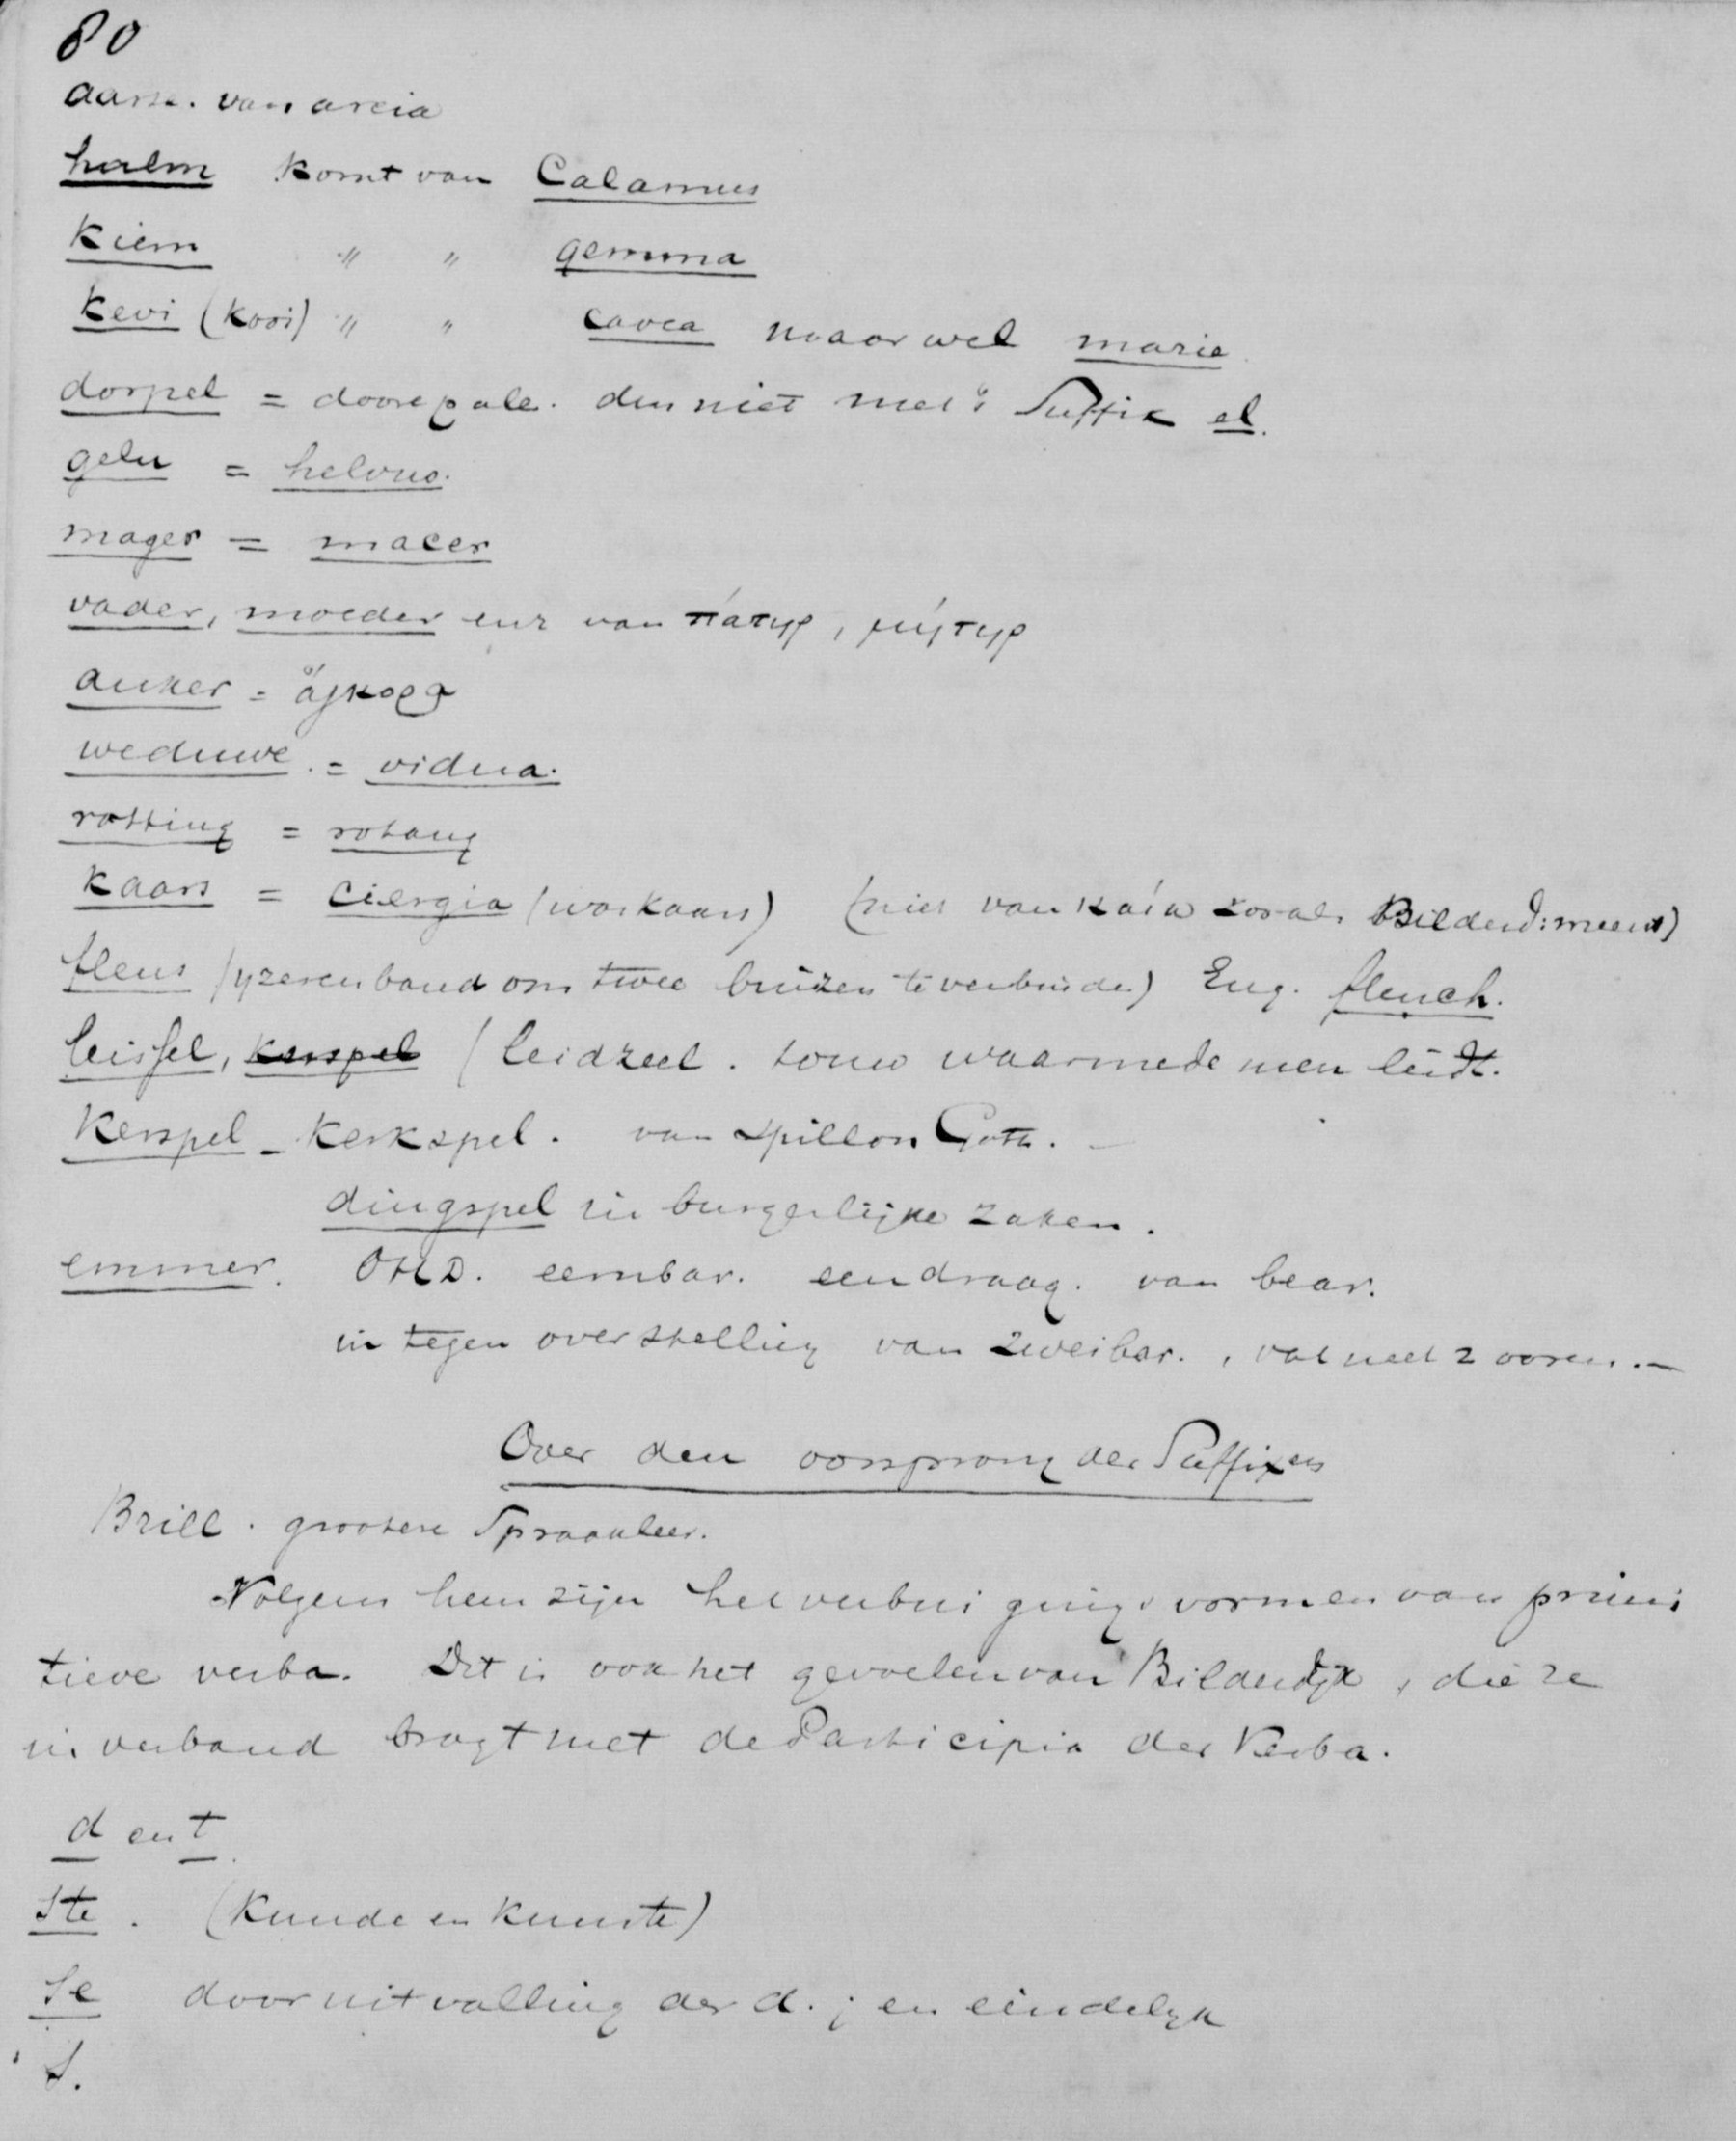 80
aarse. van arcia
halm komt van Calamus
kiem " " gemma
kevi (kooi) " " cavea maar wel marie
dorpel = doorepale. dus niet met 't Suffix el.
gelu = helvus.
mager = macer
vader, moeder enz van πάτηρ, μήτηρ
anker = ἄγκορα
weduwe. = vidua.
rotting = rotang
kaars = ciergia (waskaars) (niet van καίω zooals Bilderd: meent)
flens (yzeren band om twee buizen te verbinden) Eng. flench.
leissel, kerspel (leidzeel. touw waarmede men leidt.
Kerspel - kerkspel. van spillon Goth. -
dingspel in burgerlijke zaken.
emmer. OHD. eembar. eendraag. van bear.
in tegen overstelling van zweibar., vat met 2 ooren. -
Over den oorsprong der Suffixen
Brill. grootere Spraakleer.
Volgens hem zijn het verbuigings vormen van primi
tieve verba. Dit is ook het gevoelen van Bilderdyk, die ze
in verband bragt met de Participia der Verba.
d en t.
Ste. (Kunde en kunste)
Se door uitvalling der d.; en eindelyk
S.